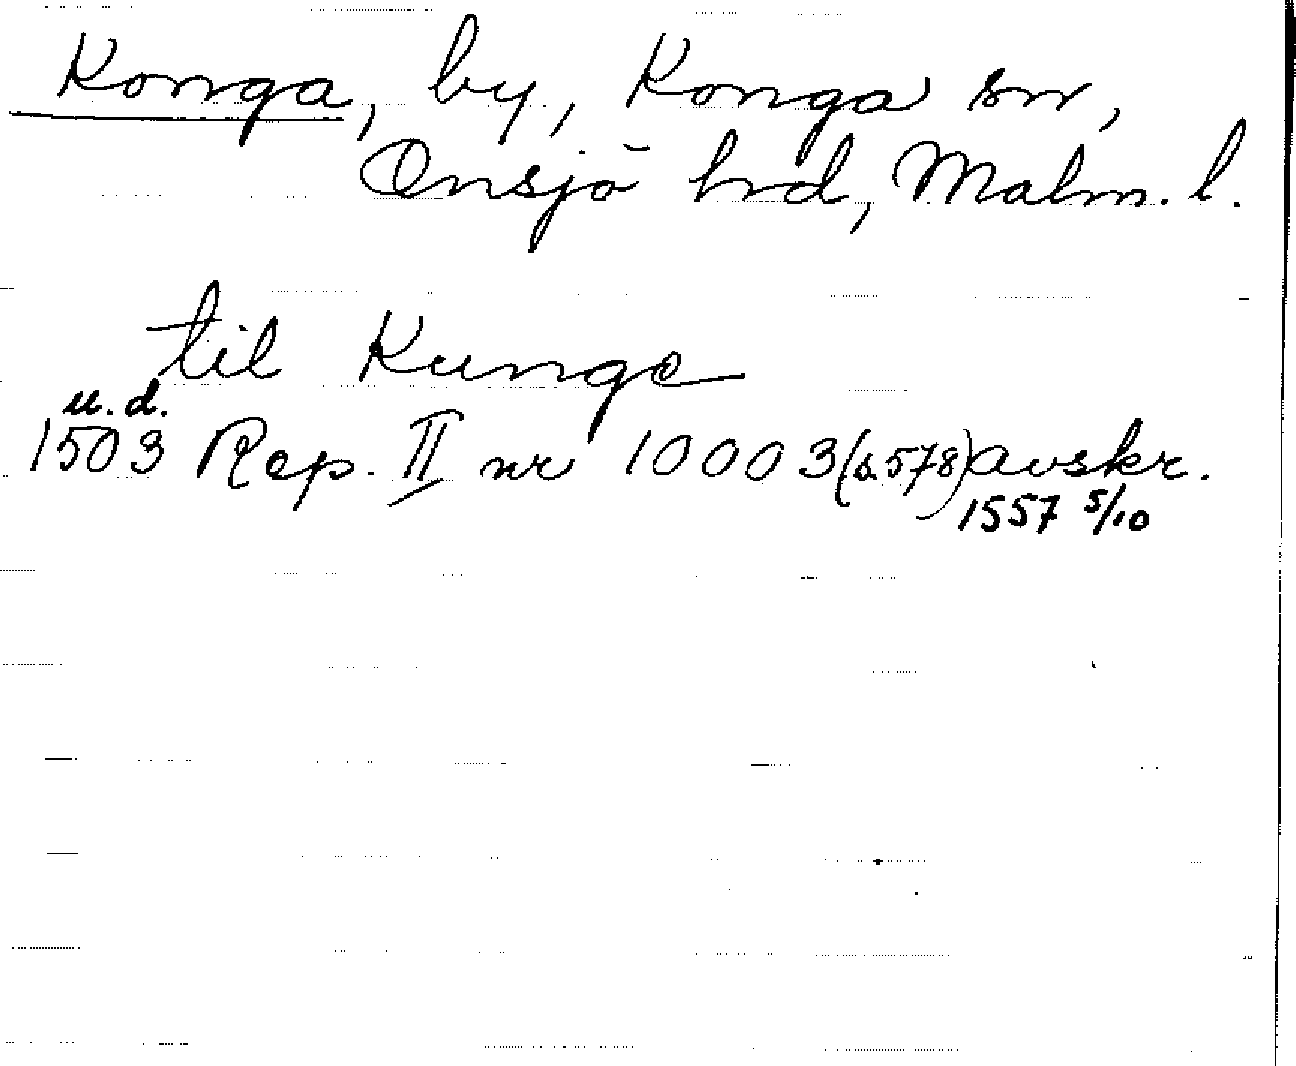 Konga, by, Konga sn,
Onsjö hrd, Malm. l.
til Kunge
u. d.
1503 Rep. II nr 10003 (s. 578) avskr.
1557 5/10